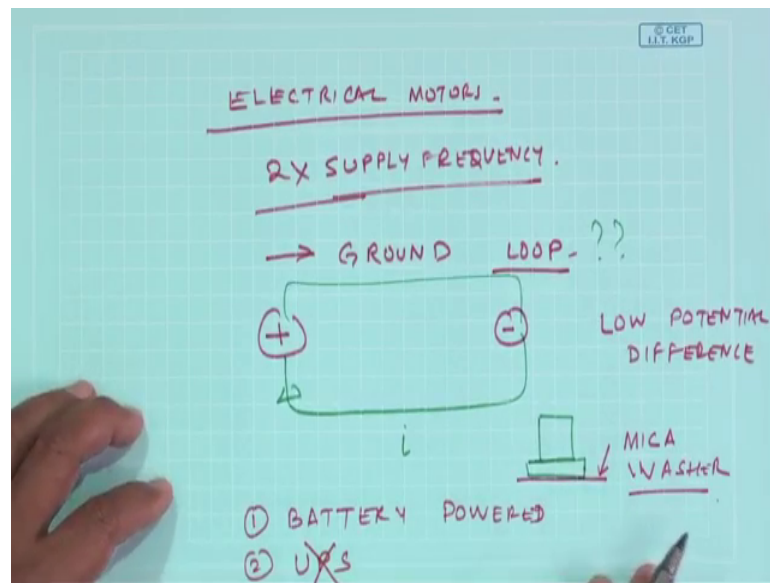 © CET
I.I.T. KGP
ELECTRICAL MOTORS.
2X SUPPLY FREQUENCY.
→ GROUND LOOP- ??
+
-
LOW POTENTIAL
DIFFERENCE
i
MICA
WASHER
① BATTERY POWERED
② UPS